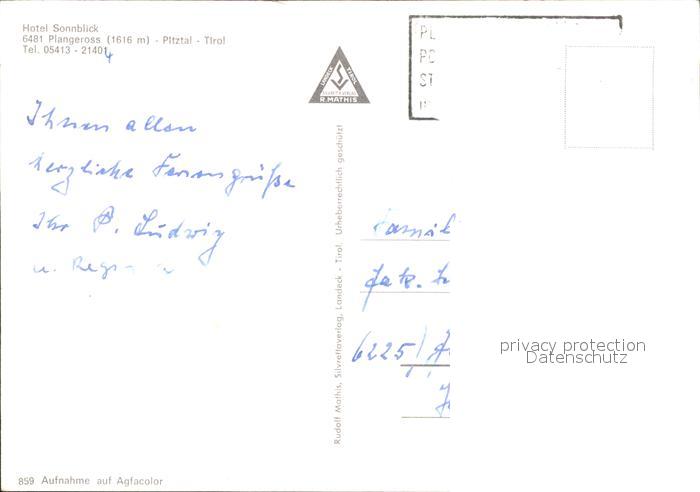 Hotel Sonnblick
6481 Plangeross (1616 m) - Pitztal - Tirol
Tel. 05413 - 21401
4
Ihnen allen
herzliche Feriengrüße
Ihr P. Ludwig
u.
LANDECK TIROL
R. MATHIS
Rudolf Mathis, Silvrettaverlag, Landeck - Tirol. Urheberrechtlich geschützt
PL
PO
ST
Famil
Jak.
6225
privacy protection
Datenschutz
859 Aufnahme auf Agfacolor